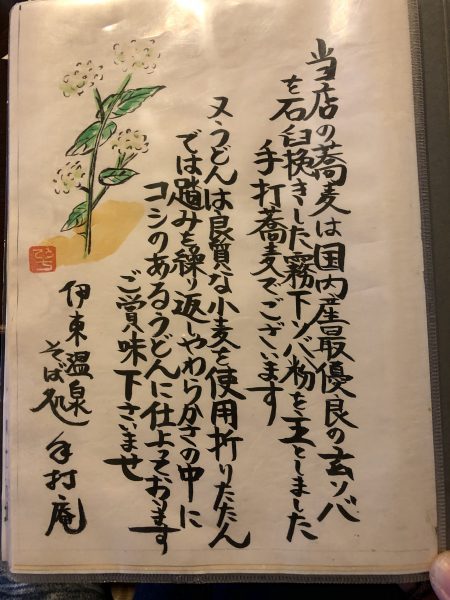 当店の蕎麦は国内産最優良の玄ソバ
を石臼挽きした霧下ソバ粉を主としました
手打蕎麦でございます
又うどんは良質な小麦を使用折りたたん
では踏みを繰り返しやわらかさの中に
コシのあるうどんに仕上っております
ご賞味下さいませ
伊東温泉
そば処 手打庵